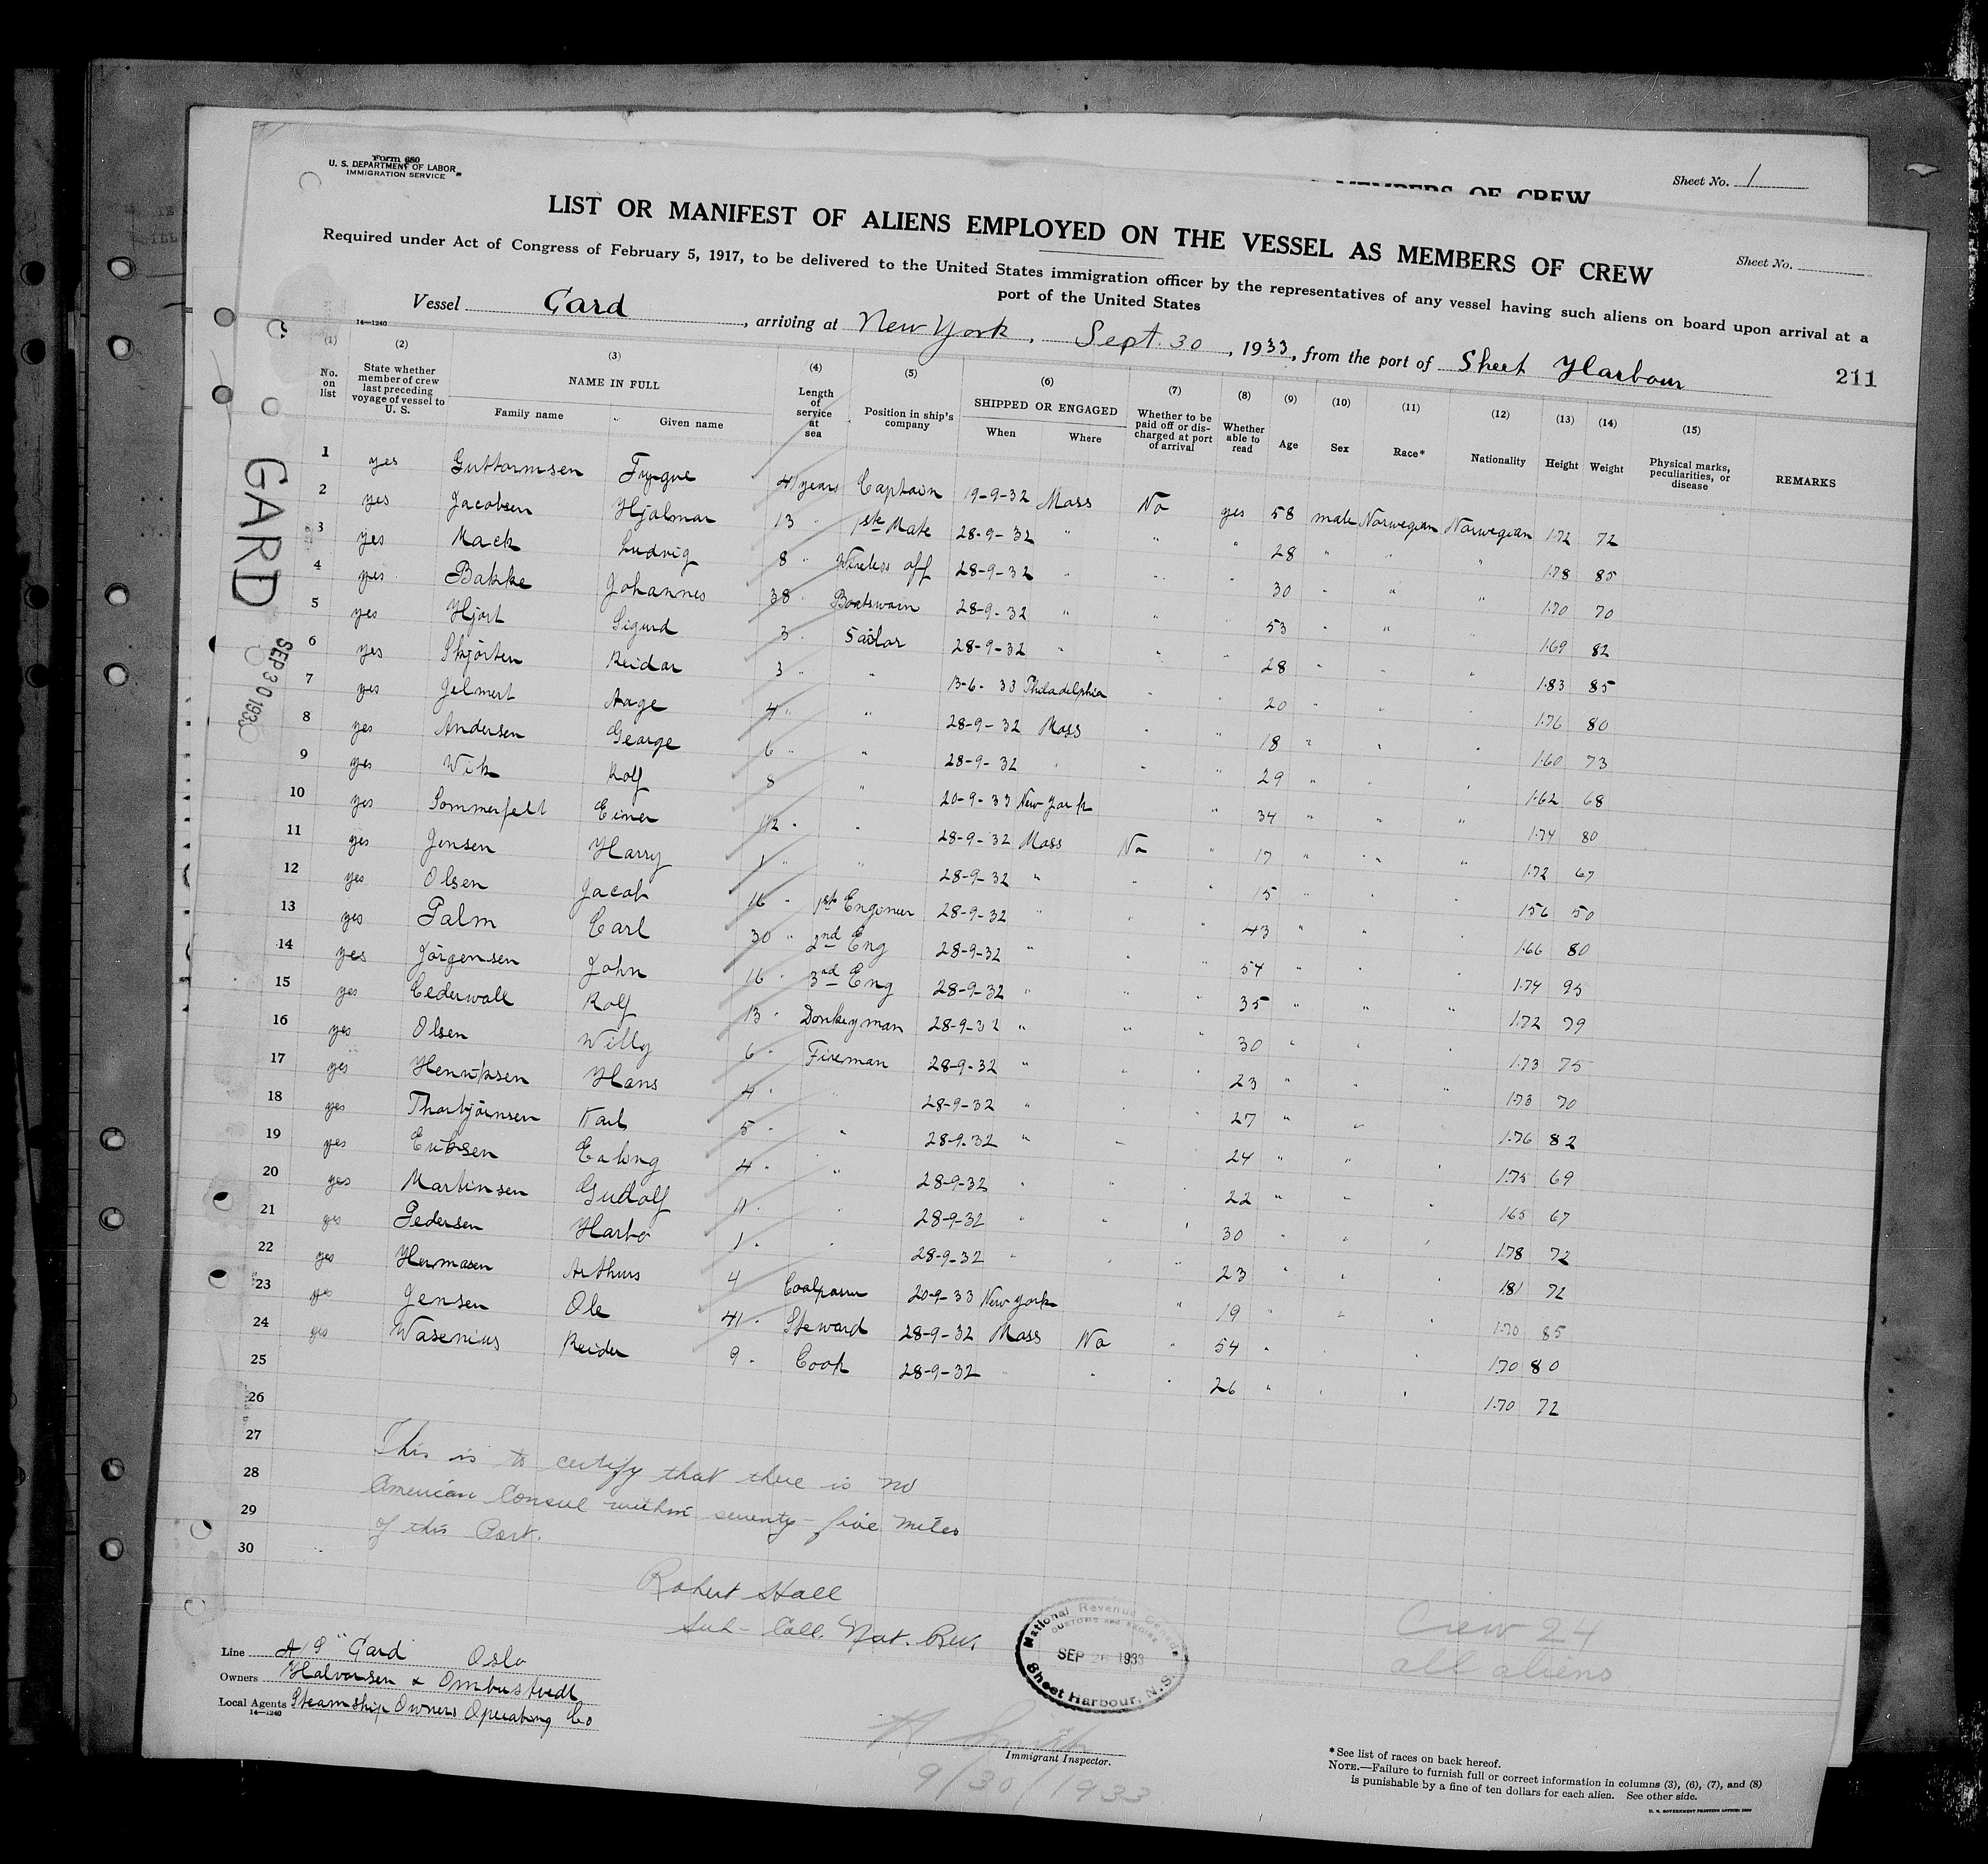 Form 680
U. S. DEPARTMENT OF LABOR
IMMIGRATION SERVICE
MEMBERS OF CREW
Sheet No. 1
LIST OR MANIFEST OF ALIENS EMPLOYED ON THE VESSEL AS MEMBERS OF CREW
Sheet No.
Required under Act of Congress of February 5, 1917, to be delivered to the United States immigration officer by the representatives of any vessel having such aliens on board upon arrival at a
port of the United States
Vessel Gard, arriving at New York, Sept. 30, 1933, from the port of Sheet Harbour
14—1240
211
(1) (2) (3) (4) (5) (6) (7) (8) (9) (10) (11) (12) (13) (14) (15)
No. on list
State whether member of crew last preceding voyage of vessel to U. S.
NAME IN FULL
Family name Given name
Length of service at sea
Position in ship's company
SHIPPED OR ENGAGED
When Where
Whether to be paid off or discharged at port of arrival
Whether able to read
Age
Sex
Race*
Nationality
Height
Weight
Physical marks, peculiarities, or disease
REMARKS
GARD
SEP 30 193
1 yes Guttormsen Trygve 41 years Captain 19-9-32 Mass No yes 58 male Norwegian Norwegian 1.72 72
2 yes Jacobsen Hjalmar 13 " 1st Mate 28-9-32 " " " 28 " " " 1.78 85
3 yes Mack Ludvig 8 " Wireless off 28-9-32 " " " 30 " " " 1.70 70
4 yes Bakke Johannes 38 " Boatswain 28-9-32 " " " 53 " " " 1.69 82
5 yes Hjort Sigurd 3 " Sailor 28-9-32 " " " 28 " " " 1.83 85
6 yes Skjorten Reidar 3 " " 13-6-33 Philadelphia " " 20 " " " 1.76 80
7 yes Jelmert Aage 4 " " 28-9-32 Mass " " 18 " " " 1.60 73
8 yes Andersen George 6 " " 28-9-32 " " " 29 " " " 1.62 68
9 yes Wik Rolf 8 " 20-9-33 New York " 34 " " " 1.74 80
10 yes Sommerfelt Einer 1/2 " " 28-9-32 Mass No " 17 " " " 1.72 67
11 yes Jensen Harry 1 " " 28-9-32 " " " 15 " " " 1.56 50
12 yes Olsen Jacob 16 " 1st Engineer 28-9-32 " " " 43 " " " 1.66 80
13 yes Palm Carl 30 " 2nd Eng 28-9-32 " " " 54 " " " 1.74 95
14 yes Jörgensen John 16 " 3rd Eng 28-9-32 " " " 35 " " " 1.72 79
15 yes Cederwall Rolf 13 " Donkeyman 28-9-32 " " " 30 " " " 1.73 75
16 yes Olsen Willy 6 " Fireman 28-9-32 " " " 23 " " " 1.73 70
17 yes Henriksen Hans 4 " " 28-9-32 " " 27 " " " 1.76 82
18 yes Thorbjörnsen Karl 5 " " 28-9-32 " " 24 " " " 1.75 69
19 yes Eriksen Erling 4 " " 28-9-32 " " " 22 " " " 1.65 67
20 yes Martinsen Gudolf 11 " " 28-9-32 " " " 30 " " " 1.78 72
21 yes Pedersen 1 " " 28-9-32 " " " 23 " " " 1.81 72
22 yes Hermasen Arthur 4 Coalpasser 20-9-33 New York " 19 " " " 1.70 85
23 yes Jensen Ole 41 " Steward 28-9-32 Mass No " 54 " " " 1.70 80
24 yes Wasenius Reider 9 " Cook 28-9-32 " " " 26 " " " 1.70 72
25
26
27
28
29
30
This is to certify that there is no
American Consul within seventy-five miles
of this Port.
Robert Hall
Sub-Coll. Nat. Rev.
National Revenue Canada
CUSTOMS AND EXCISE
SEP 26 1933
Sheet Harbour, N.S.
Crew 24
all aliens
Line A/S "Gard" Oslo
Owners Halvorsen & Ombustvedt
Local Agents Steamship Owners Operating Co
14—1240
H Smith
Immigrant Inspector.
9/30/1933
*See list of races on back hereof.
NOTE.—Failure to furnish full or correct information in columns (3), (6), (7), and (8)
is punishable by a fine of ten dollars for each alien. See other side.
U. S. GOVERNMENT PRINTING OFFICE: